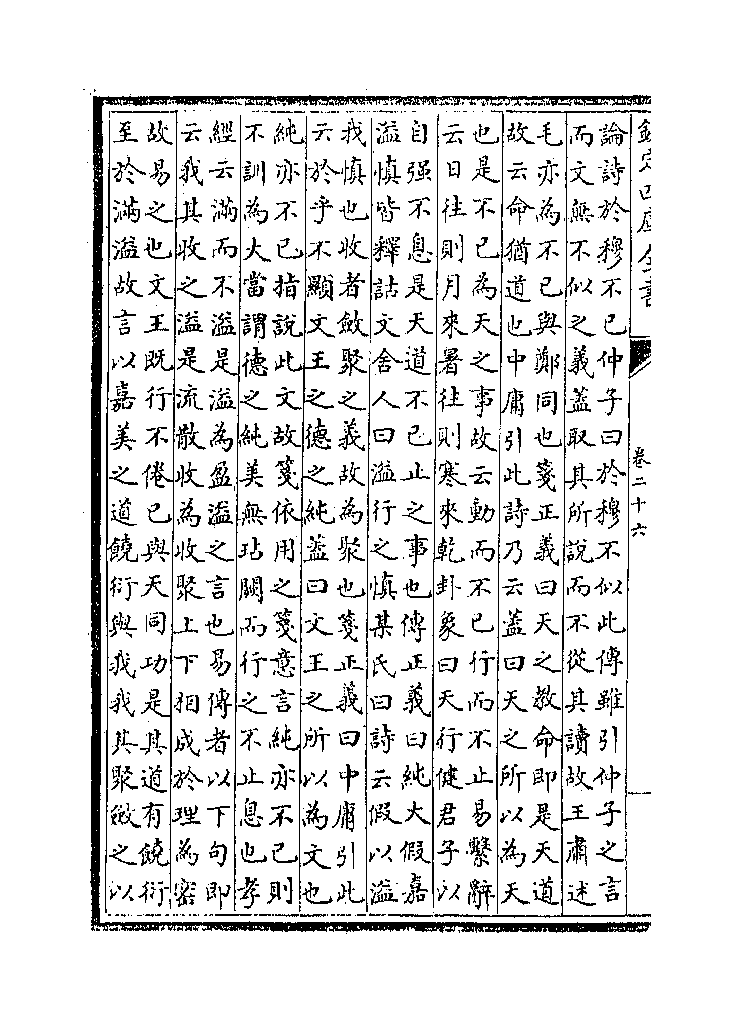 欽定四庫全書
卷二十六
論詩於穆不已仲子曰於穆不似此傳雖引仲子之言
而文無不似之義蓋取其所說而不從其讀故王肅述
毛亦為不已與鄭同也箋正義曰天之教命即是天道
故云命猶道也中庸引此詩乃云蓋曰天之所以為天
也是不已為天之事故云動而不已行而不止易繫辭
云日往則月來暑往則寒來乾卦象曰天行健君子以
自强不息是天道不已止之事也傳正義曰純大假嘉
溢慎皆釋詁文舍人曰溢行之慎某氏曰詩云假以溢
我慎也收者斂聚之義故為聚也箋正義曰中庸引此
云於乎不顯文王之德之純蓋曰文王之所以為文也
純亦不已指說此文故箋依用之箋意言純亦不已則
不訓為大當謂德之純美無玷闕而行之不止息也孝
經云滿而不溢是溢為盈溢之言也易傳者以下句即
云我其收之溢是流散收為收聚上下相成於理為密
故易之也文王既行不倦已與天同功是其道有饒衍
至於滿溢故言以嘉美之道饒衍與我我其聚斂之以